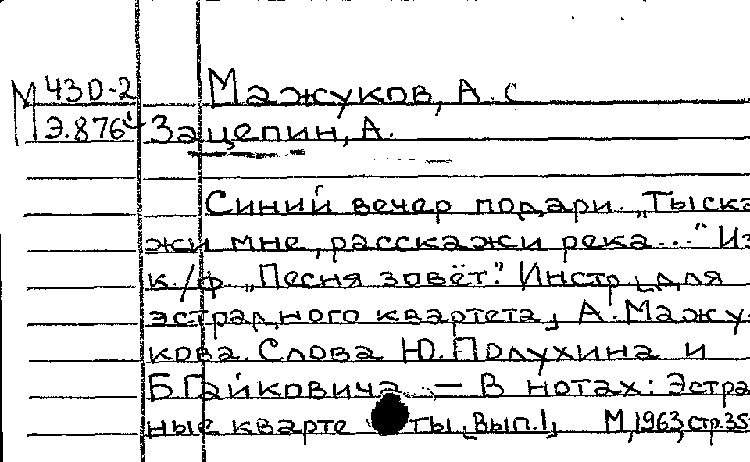 М 430-2 Мажуков, А. С
Э.876 Зацепин, А.
Синий вечер подари. „Ты ска
жи мне, расскажи река..." Из
к./ф „Песня зовёт." Инстр. для
эстрадного квартета, А. Мажу-
кова. Слова Ю. Полухина и
Б. Гайковича. — В нотах: Эстра
ные кварте ты, Вып. 1, М, 1963, стр. 35